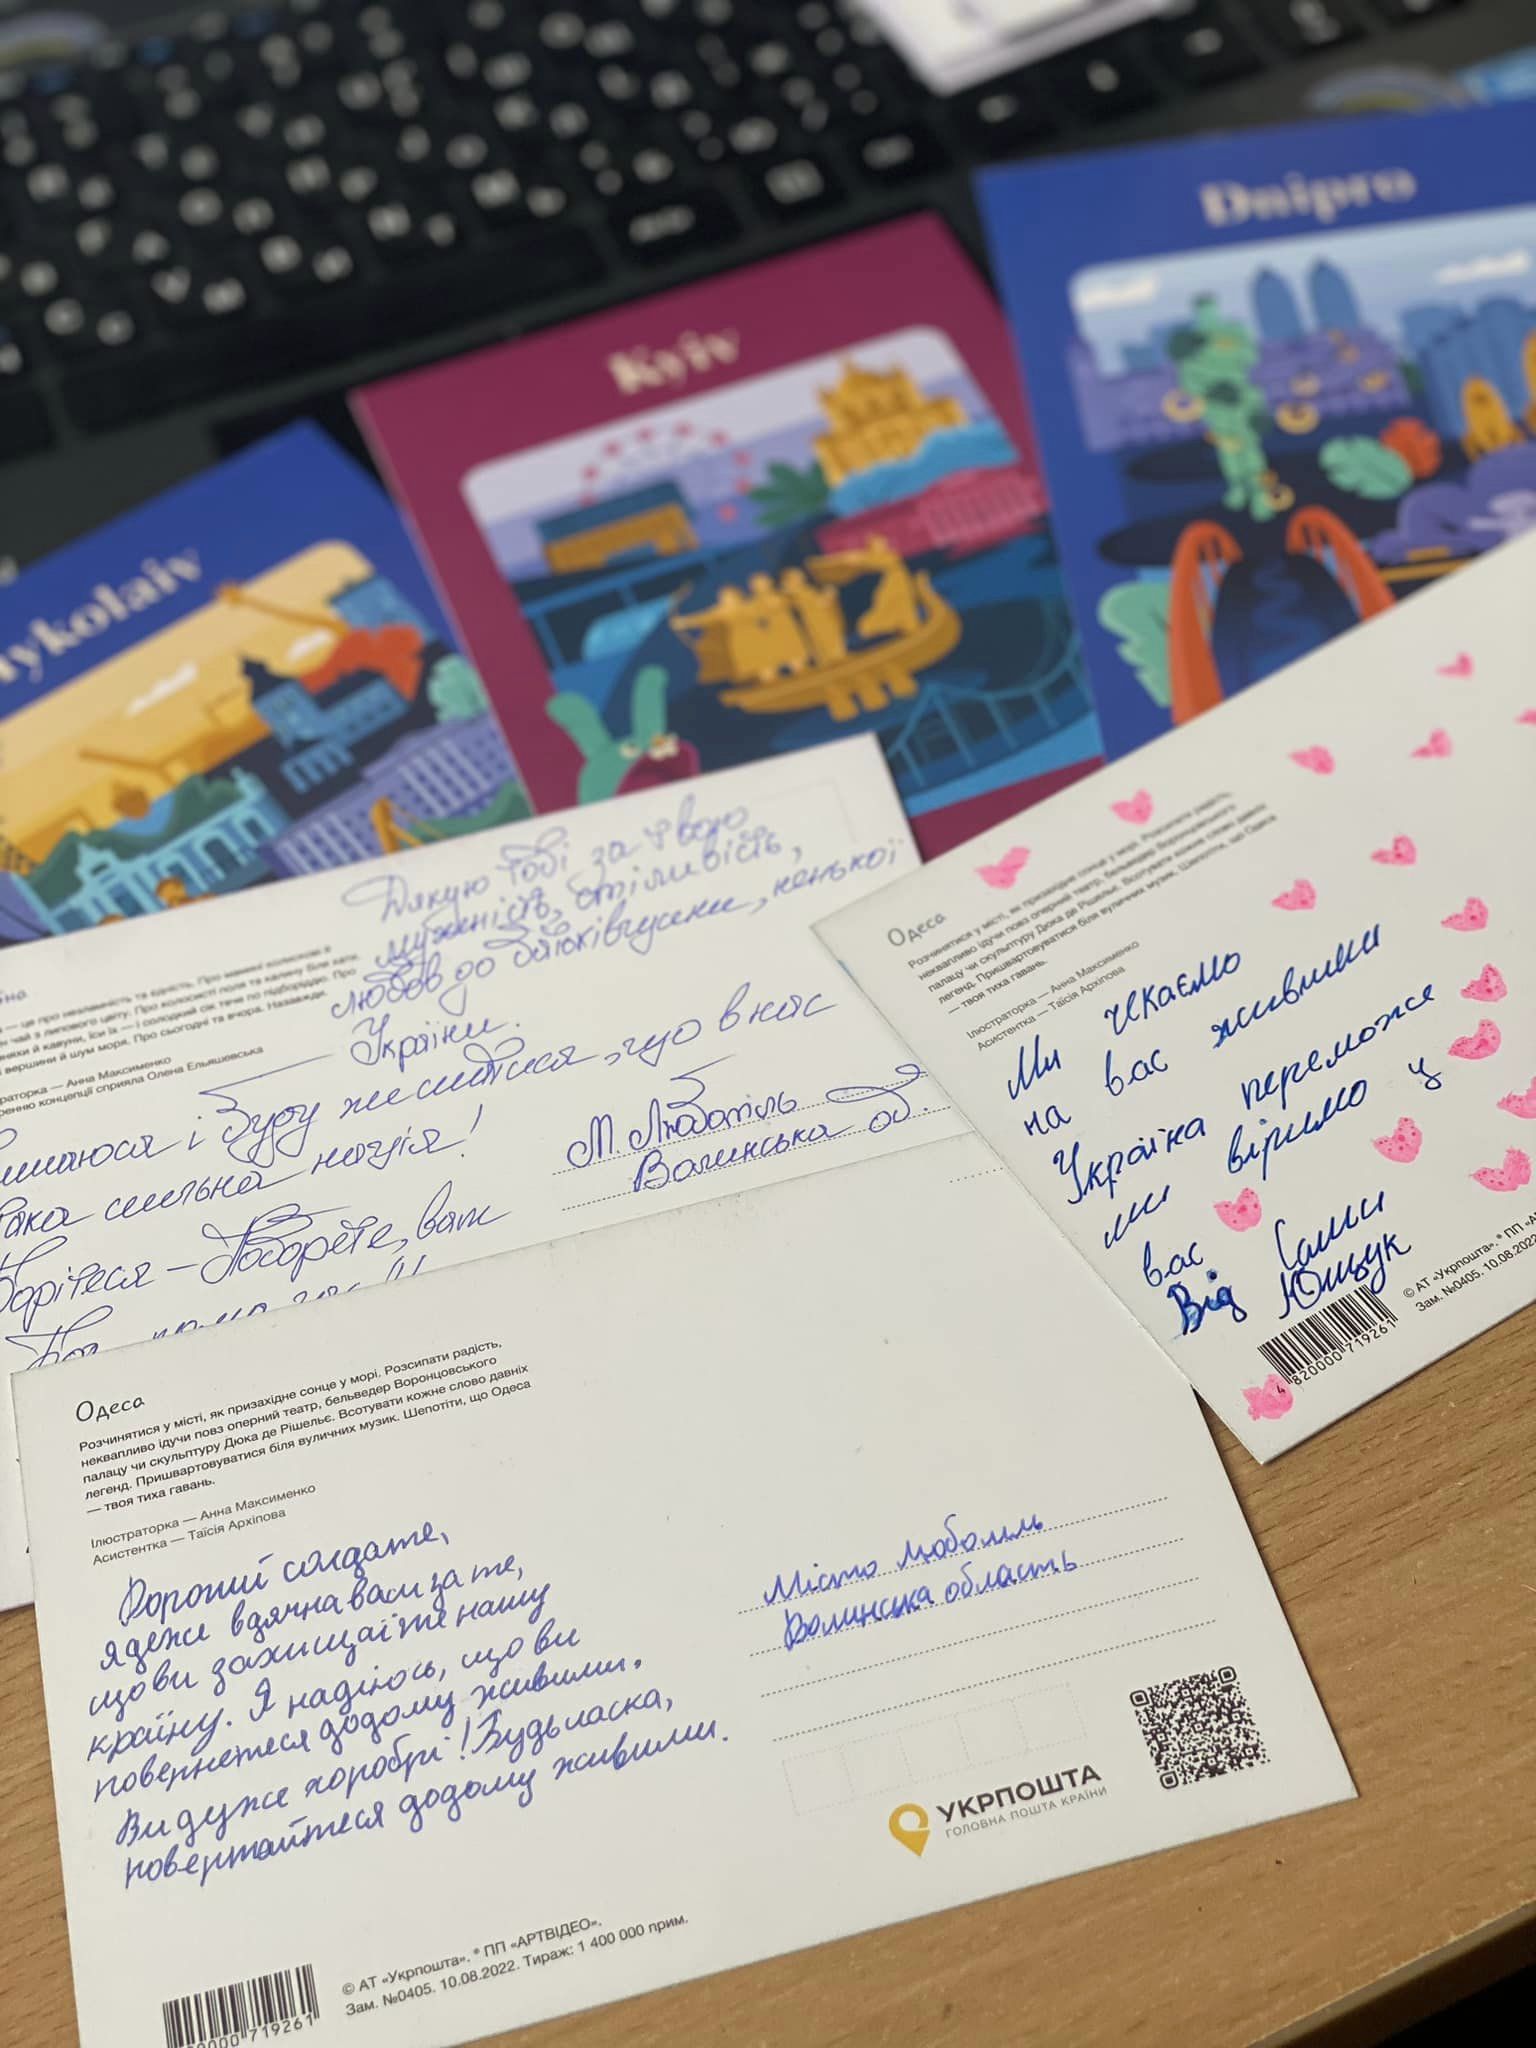 Dnipro
Kyiv
ykolaiv
Дякую Тобі за твою
мужність, сміливість,
любов до Батьківщини, неньки
України.
— це про незламність та єдність. Про мамині колискові з
чай з липового цвіту. Про колоскисті поля та калину біля хати.
й кавуни, їси їх — і солодкий сік тече по підборіддю. Про
вершини й шум моря. Про сьогодні та вчора. Назавжди.
раторка — Анна Максименко
ренню концепції сприяла Олена Ельяшевська
і буду молитися, що в нас
така сильна нація!
Борітеся – Поборете, вам
Бог
М. Любомль
Волинська обл.
Одеса
Розчинятися у місті, як призахідне сонце у морі. Розсипати радість,
неквапливо ідучи повз оперний театр, бельведер Воронцовського
палацу чи скульптуру Дюка де Рішельє. Всотувати кожне слово давніх
легенд. Пришвартовуватися біля вуличних музик. Шепотіти, що Одеса
— твоя тиха гавань.
Ілюстраторка — Анна Максименко
Асистентка — Таїсія Архіпова
Ми чекаємо
на вас живими
Україна переможе
ми віримо у
вас
Від Саши
Ющук
4 820000 719261
© АТ «Укрпошта». ® ПП «АРТ
Зам. №0405. 10.08.2022
Одеса
Розчинятися у місті, як призахідне сонце у морі. Розсипати радість,
неквапливо ідучи повз оперний театр, бельведер Воронцовського
палацу чи скульптуру Дюка де Рішельє. Всотувати кожне слово давніх
легенд. Пришвартовуватися біля вуличних музик. Шепотіти, що Одеса
— твоя тиха гавань.
Ілюстраторка — Анна Максименко
Асистентка — Таїсія Архіпова
Дорогий солдате,
я дуже вдячна вам за те,
що ви захищаєте нашу
країну. Я надіюсь, що ви
повернетеся додому живими.
Ви дуже хоробрі! Будь ласка,
повертайтеся додому живими.
Місто Любомль
Волинська область
УКРПОШТА
ГОЛОВНА ПОШТА КРАЇНИ
© АТ «Укрпошта». ® ПП «АРТВІДЕО».
Зам. №0405. 10.08.2022. Тираж: 1 400 000 прим.
0000 719261